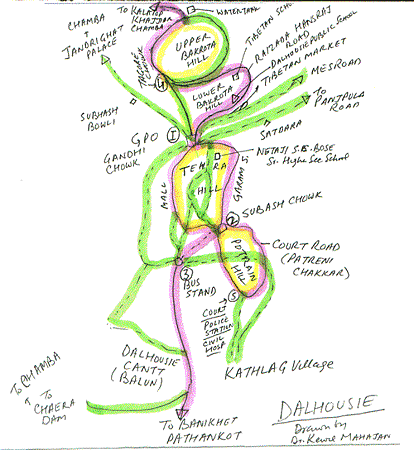 CHAMBA
↑
JANDRIGHAT
PALACE
TO KALATOP
KHAJJIAR
CHAMBA
WATERTANK
TIBETAN SCH
RAIZADA HANSRAJ
ROAD
DALHOUSIE PUBLIC School
TIBETAN MARKET
UPPER
BAKROTA
HILL
TAGORE
CHOWK
4
LOWER
BAKROTA
HILL
MES ROAD
TO
PANJPULA
ROAD
SATDARA
SUBHASH
BOWLI
GPO
1
GANDHI
CHOWK
NETAJI S.B. BOSE
Sr. Higher Sec School
TEHRA
HILL
MALL
GARAM S
2
SUBASH CHOWK
POTRAIN
HILL
COURT ROAD
(PATRENI
CHAKKAR)
3
BUS
STAND
5
COURT
POLICE
STATION
CIVIL
HOSP
KATHLAG Village
DALHOUSIE
CANTT
(BALUN)
TO CHAMBA
↑ TO
CHAERA
DAM
TO BANIKHET
PATHANKOT
DALHOUSIE
Drawn by
Dr. Kewal MAHAJAN